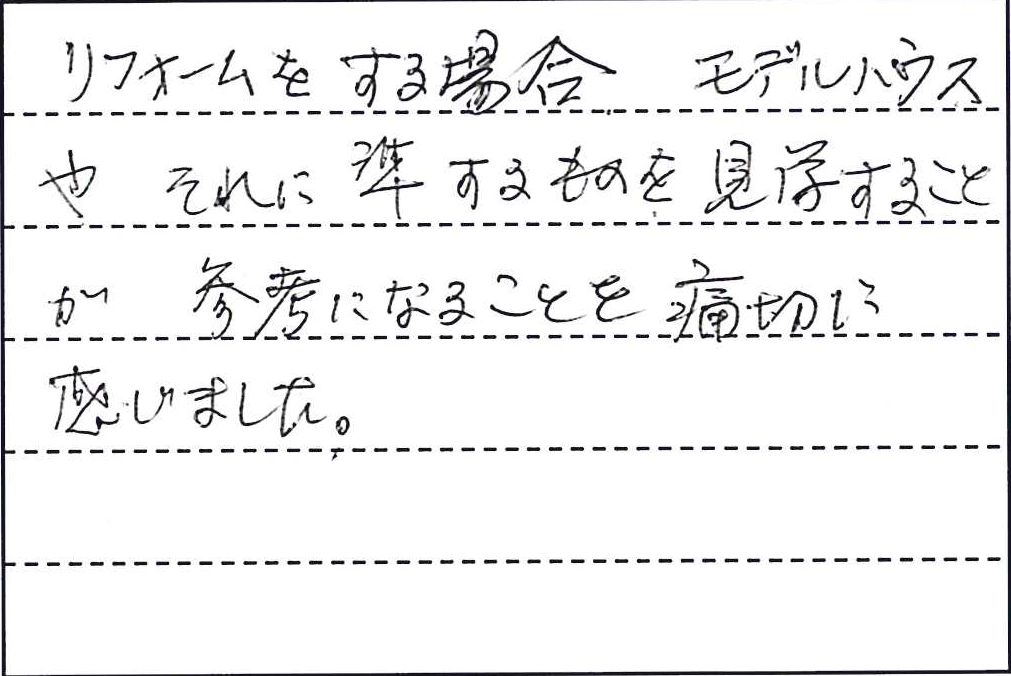 リフォームをする場合 モデルハウス
や それに準するものを見学すること
が 参考になることを痛切に
感じました。